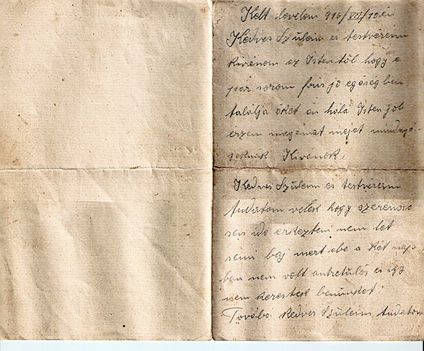 Kelt levelem 916/VII/10-én
Kedves Szüleim és testvéreim
Kivánom az Istentől hogy e
par sorom friss jó egésségben
találja őket én hálá Isten jol
érzem magamat mejet mindnyá
joknak Kivánok.
Kedves Szüleim és testvéreim
tudatom velek hogy szerencsé
sen ide érkeztem nem let
semi baj mert ebe a két nap
ban nem volt
nem kerestek benünket
Továbá Kedves Szüleim tudatom